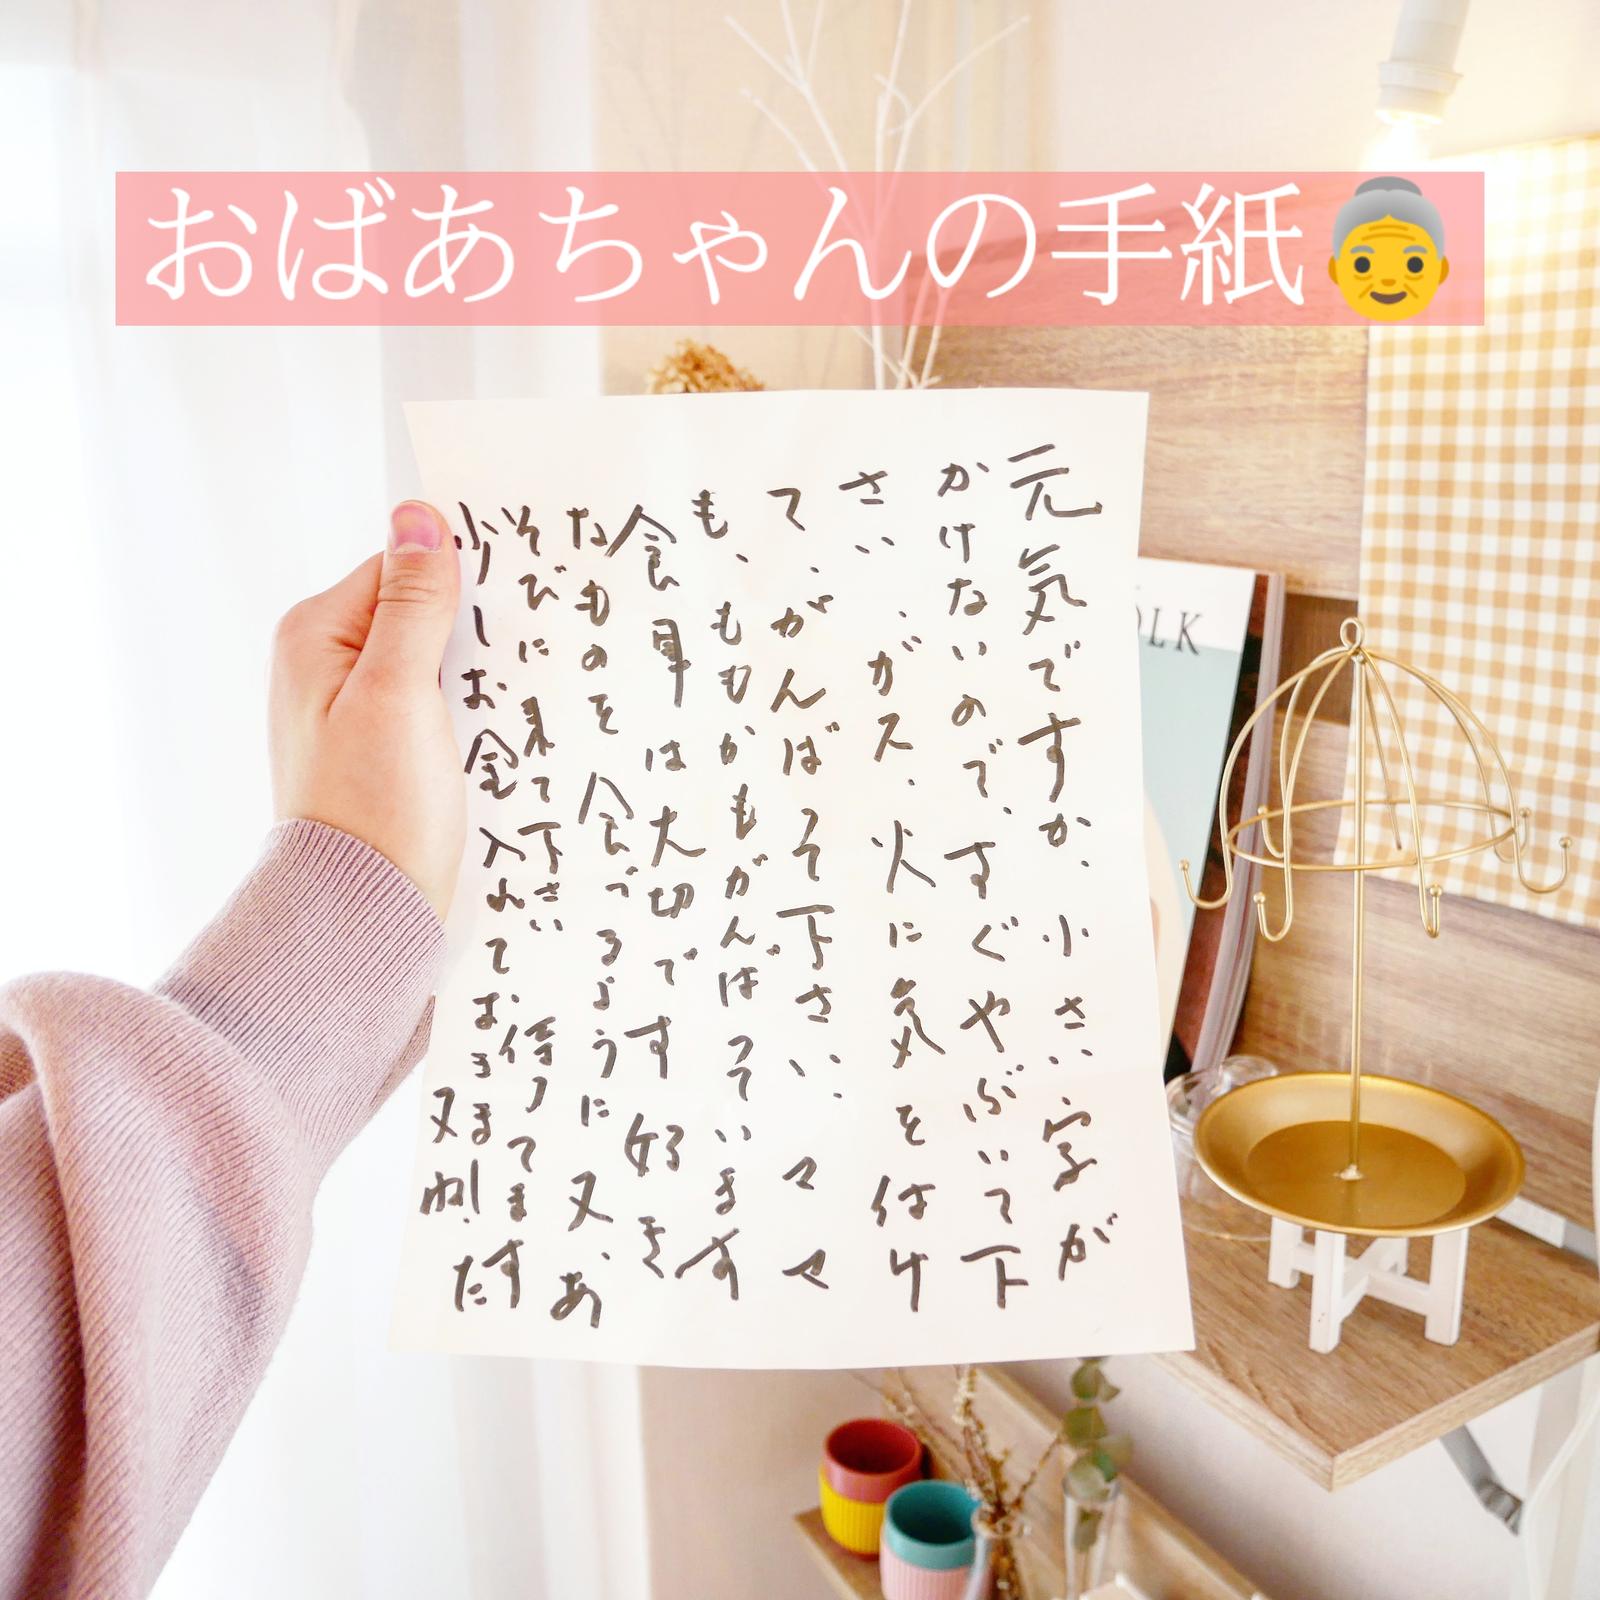 おばあちゃんの手紙👵
元気ですか、小さい字が
かけないので、すぐやぶいて下
さい、ガス、火に気を付け
て、がんばって下さい、ママ
も、ももかもがんばっています
食事は大切です好き
なものを食べるように又、あ
そびに来て下さい待ってます
少しお金入れておきます
OLK